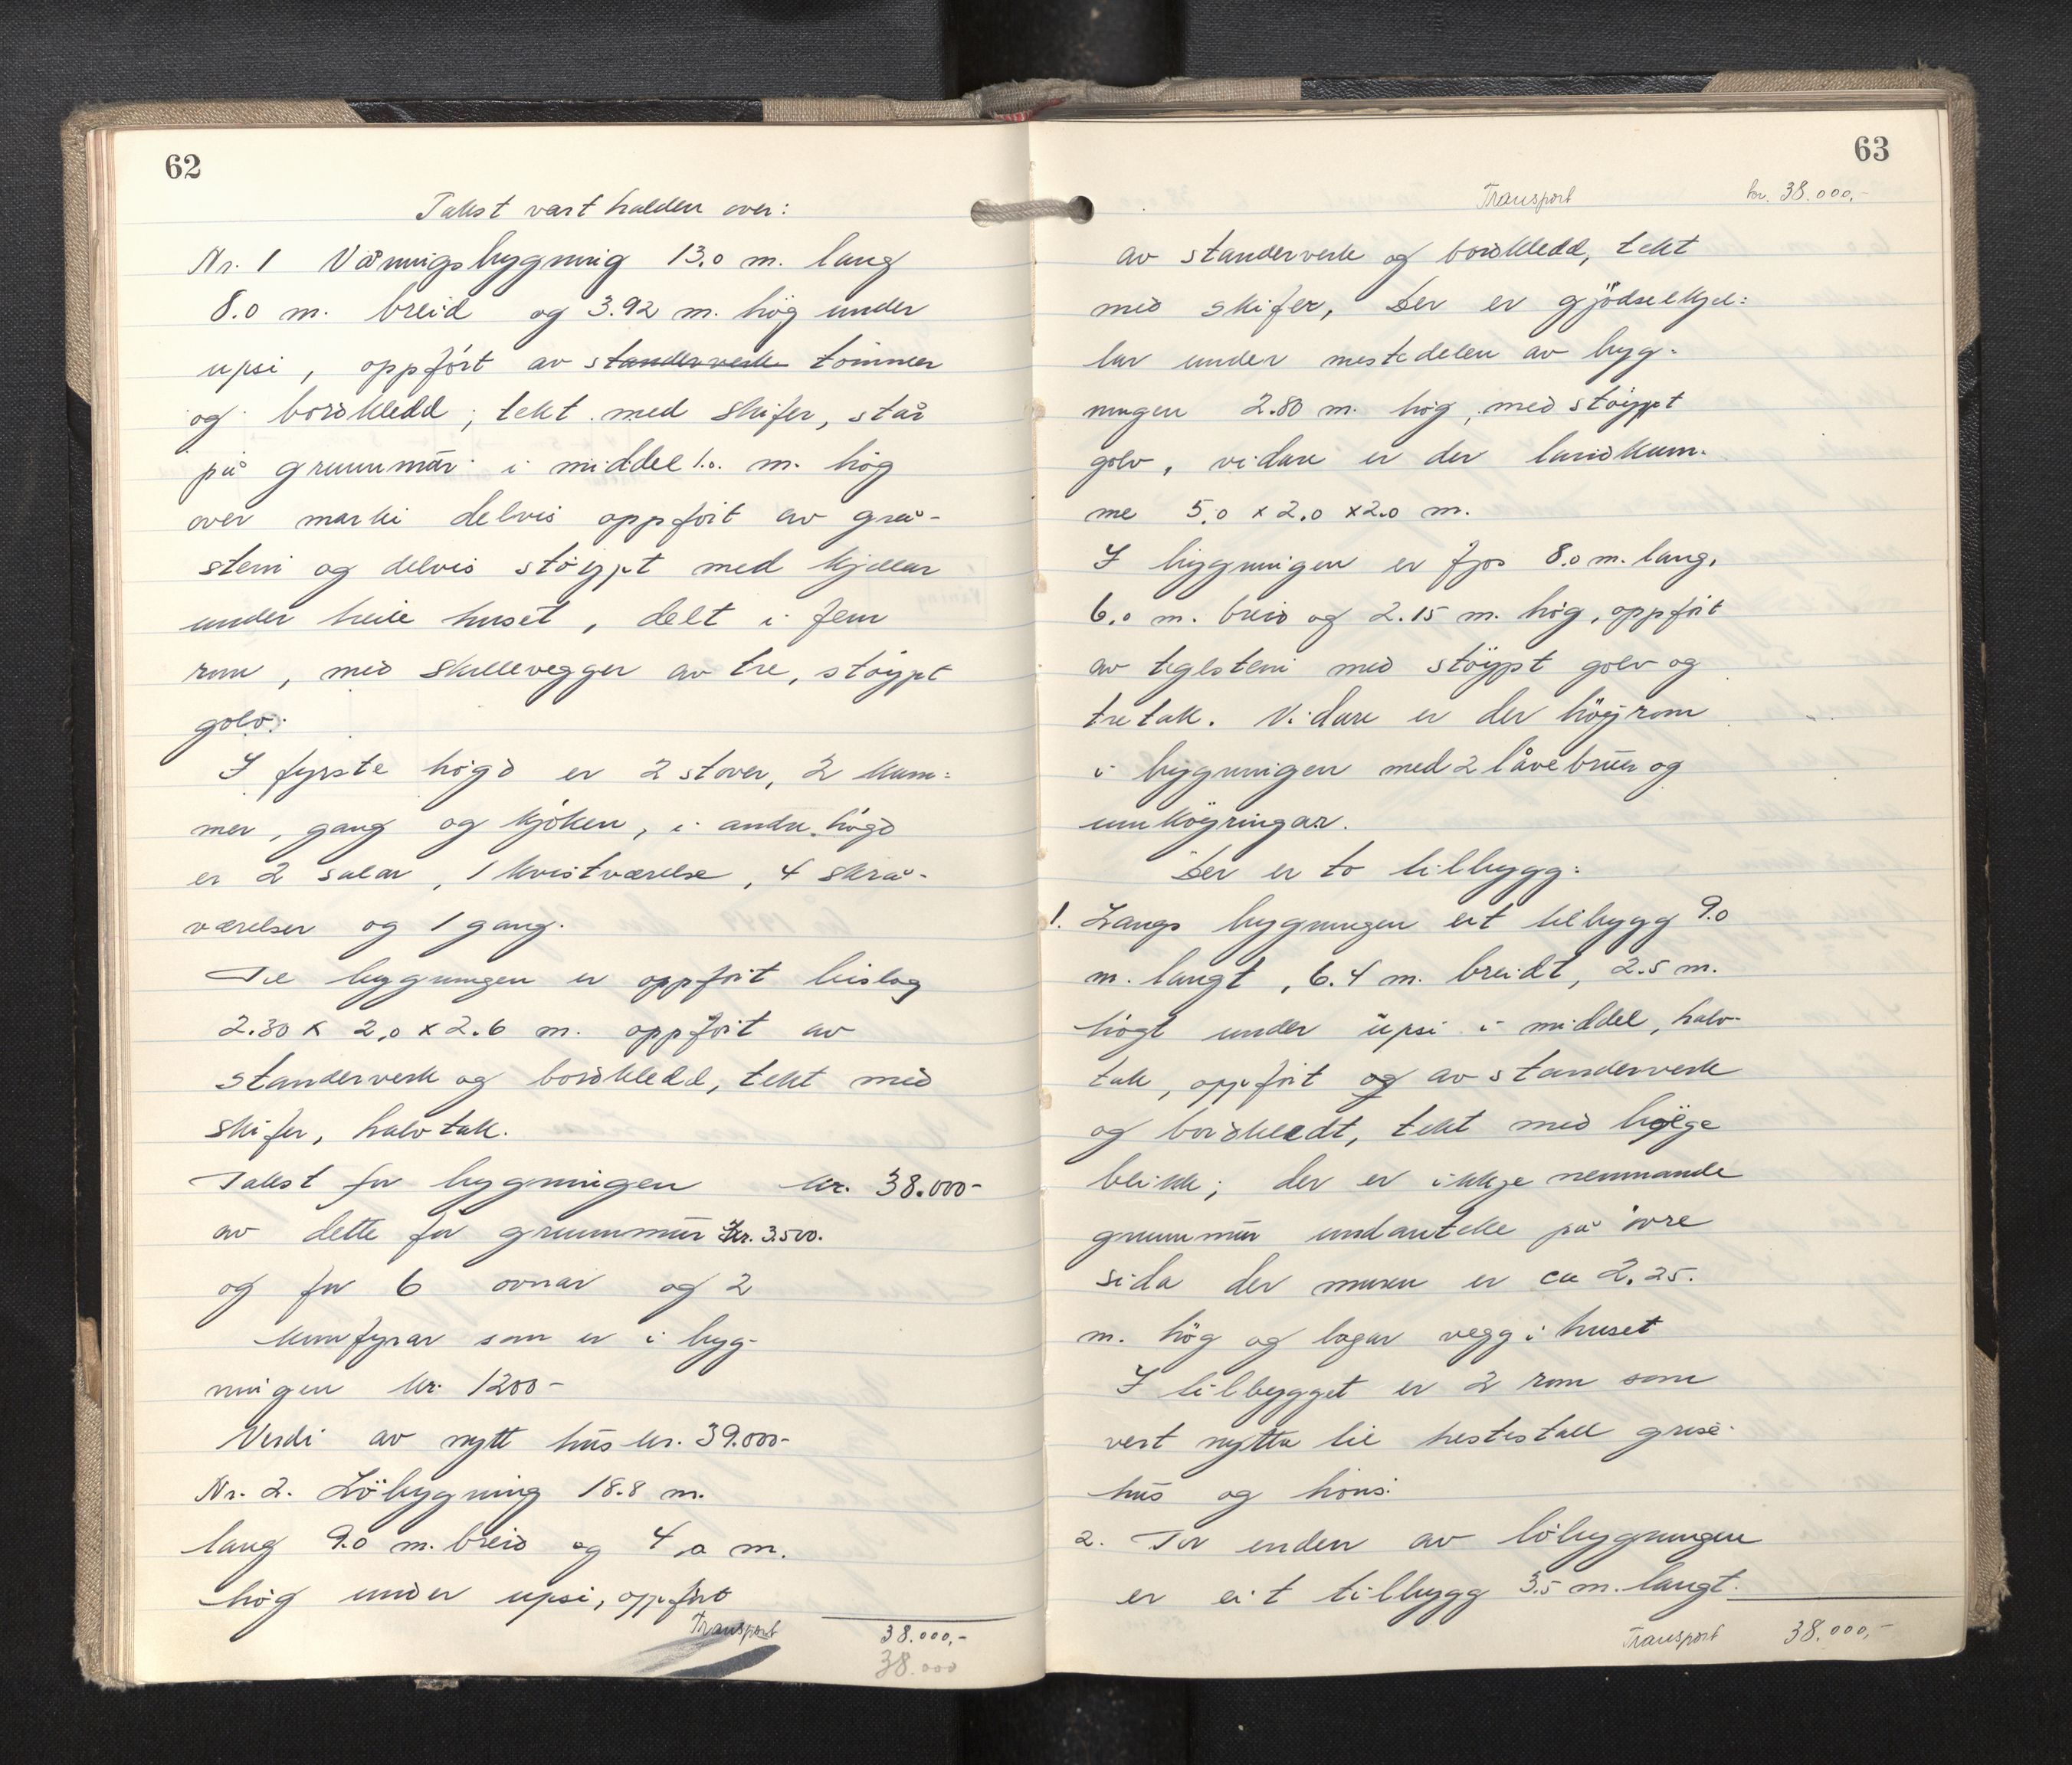 62
Takst vart halden over:
Nr. 1 Våningsbygning 13.0 m. lang
8.0 m. breid og 3.92 m. høg under
upsi, oppført av standerverk tömmer
og bordkledd, tekt med skifer, står
på grunnmúr i middel 1.0. m. høg
over marki delvis oppført av grå-
stein og delvis støypt med kjellar
under heile huset, delt i fem
rom, med skillevegger av tre, støypt
golv.
I fyrste høgd er 2 stover, 2 kam-
mer, gang og kjøken, i andre høgd
er 2 salar, 1 kvistværelse, 4 skrå-
værelser og 1 gang.
Til bygningen er oppført bislag
2.30 x 2.0 x 2.6 m. oppført av
standerverk og bordkledd, tekt med
skifer, halvtak.
Takst for bygningen kr. 38.000-
av dette for grunnmúr Kr. 3.500.
og for 6 ovnar og 2
kumfyrar som er i byg-
ningen kr. 1200-
Verdi av nytt hús kr. 39.000-
Nr. 2. Löbygning 18.8 m.
lang 9.0 m. breid og 4,0 m.
høg under upsi, oppført
Transport 38.000,-
38.000
63
Transport kr. 38.000,-
av standerverk og bordkledd, tekt
med skifer, Der er gjödselkjel-
lar under mestedelen av byg-
ningen 2.80 m. høg, med støypt
golv, vidare er der landkum-
me 5.0 x 2.0 x 2.0 m.
I bygningen er fjos 8.0 m. lang,
6.0 m. breid og 2.15 m. høg, oppført
av teglstein med stöypt golv og
tretak. Vidare er der höyrom
i bygningen med 2 låvebruer og
umköyringar.
Der er to tilbygg:
1. Langs bygningen eit tilbygg 9.0
m. langt, 6.4 m. breidt, 2.5 m.
høgt under upsi i middel, halv-
tak, oppført og av standerverk
og bordkledt, tekt med bølge
blikk; der er ikkje nemnande
grunnmúr undanteke på øvre
sida der muren er ca 2.25.
m. høg og lagar vegg i huset
I tilbygget er 2 rom som
vert nytta til hestestall grise-
hús og höns.
2. For enden av löbygningen
er eit tilbygg 3.5 m. langt.
Transport 38.000,-